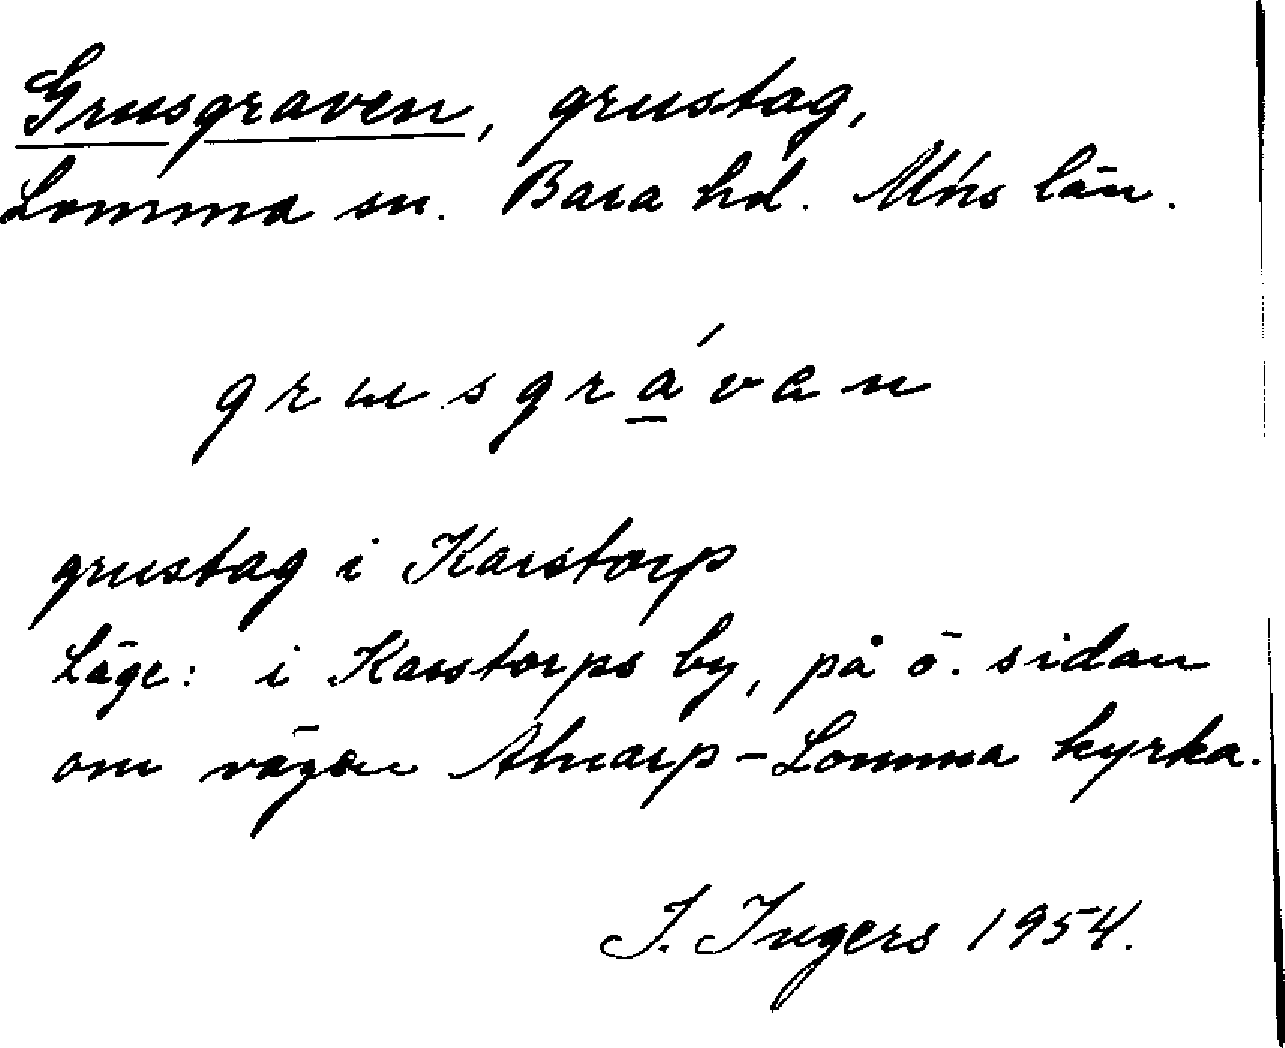 Grusgraven, grustag,
Lomma sn. Bara hd. M:hs län.
grusgrá̱van
grustag i Karstorp
Läge: i Karstorps by, på ö. sidan
om vägen Alnarp–Lomma kyrka.
I. Ingers 1954.